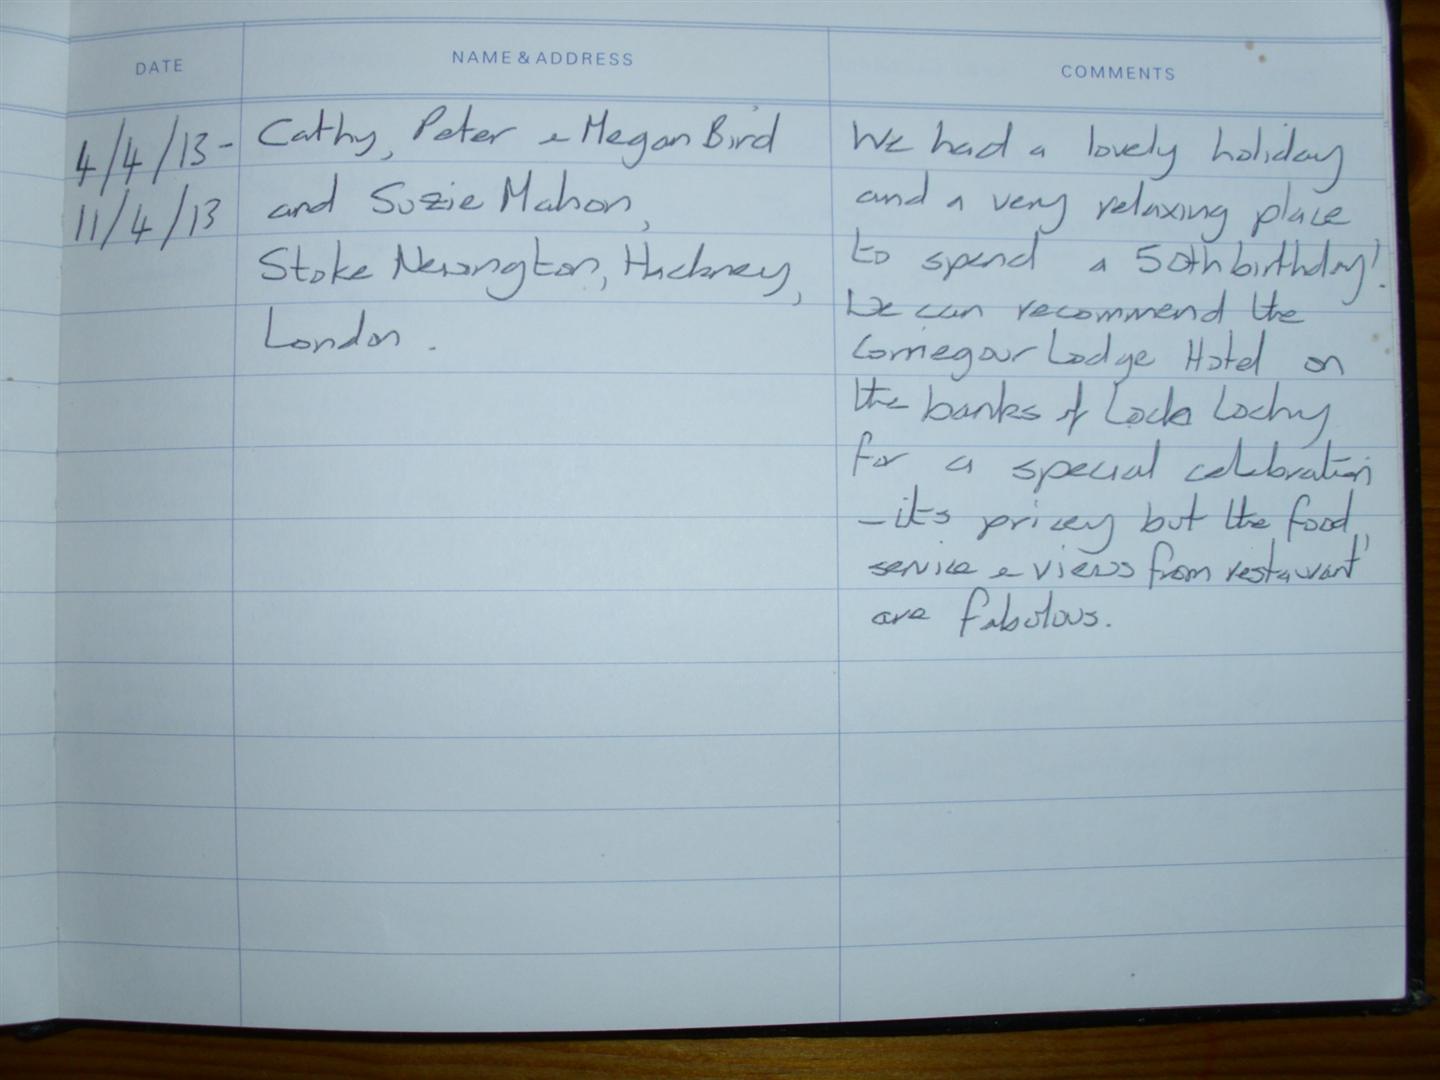 DATE
NAME & ADDRESS
COMMENTS
4/4/13 -
11/4/13
Cathy, Peter & Megan Bird
and Suzie Mahon,
Stoke Newington, Hackney,
London.
We had a lovely holiday
and a very relaxing place
to spend a 50th birthday!
We can recommend the
Corriegour Lodge Hotel on
the banks of Loch Lochy
for a special celebration
- it's pricey but the food,
service & views from restaurant
are fabulous.